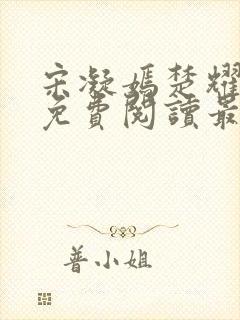 宋凝嫣楚耀
免費閱讀最
普小姐